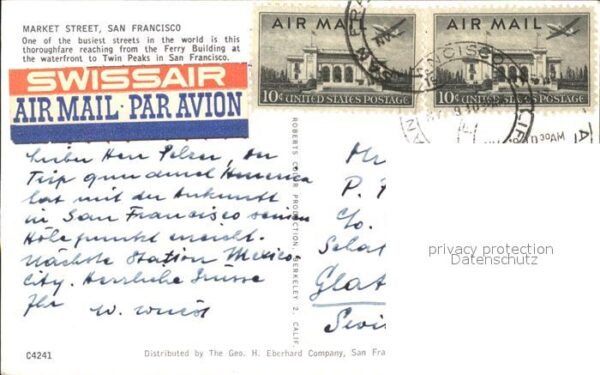 MARKET STREET, SAN FRANCISCO
One of the busiest streets in the world is this
thoroughfare reaching from the Ferry Building at
the waterfront to Twin Peaks in San Francisco.
SWISSAIR
AIR MAIL · PAR AVION
AIR MAIL
10¢ UNITED STATES POSTAGE
AIR MAIL
10¢ UNITED STATES POSTAGE
30AM
Lieber Herr Pelzer, der
Trip quer durch Amerika
hat mit der Ankunft
in San Francisco seinen
Höhepunkt erreicht.
Nächste Station Mexico
City. Herzliche Grüsse
Ihr
W.
ROBERTS COLOR PRODUCTION, BERKELEY 2, CALIF.
Mr
P.
c/o.
Glat
privacy protection
Datenschutz
C4241
Distributed by The Geo. H. Eberhard Company, San Fra